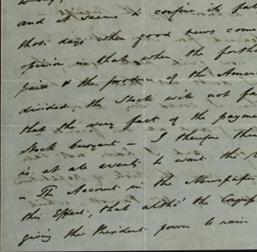 and it seems to confirm its fal
those days when good news come
opinion is that when the forth
paid & the portion of the Amer
divided, the Stock will not fa
that the very fact of the payme
Stock buoyant - I therefore thin
is at all events to wait the
- The Account in the Newspape
this Effect, that altho' the Congr
giving the President power to rais